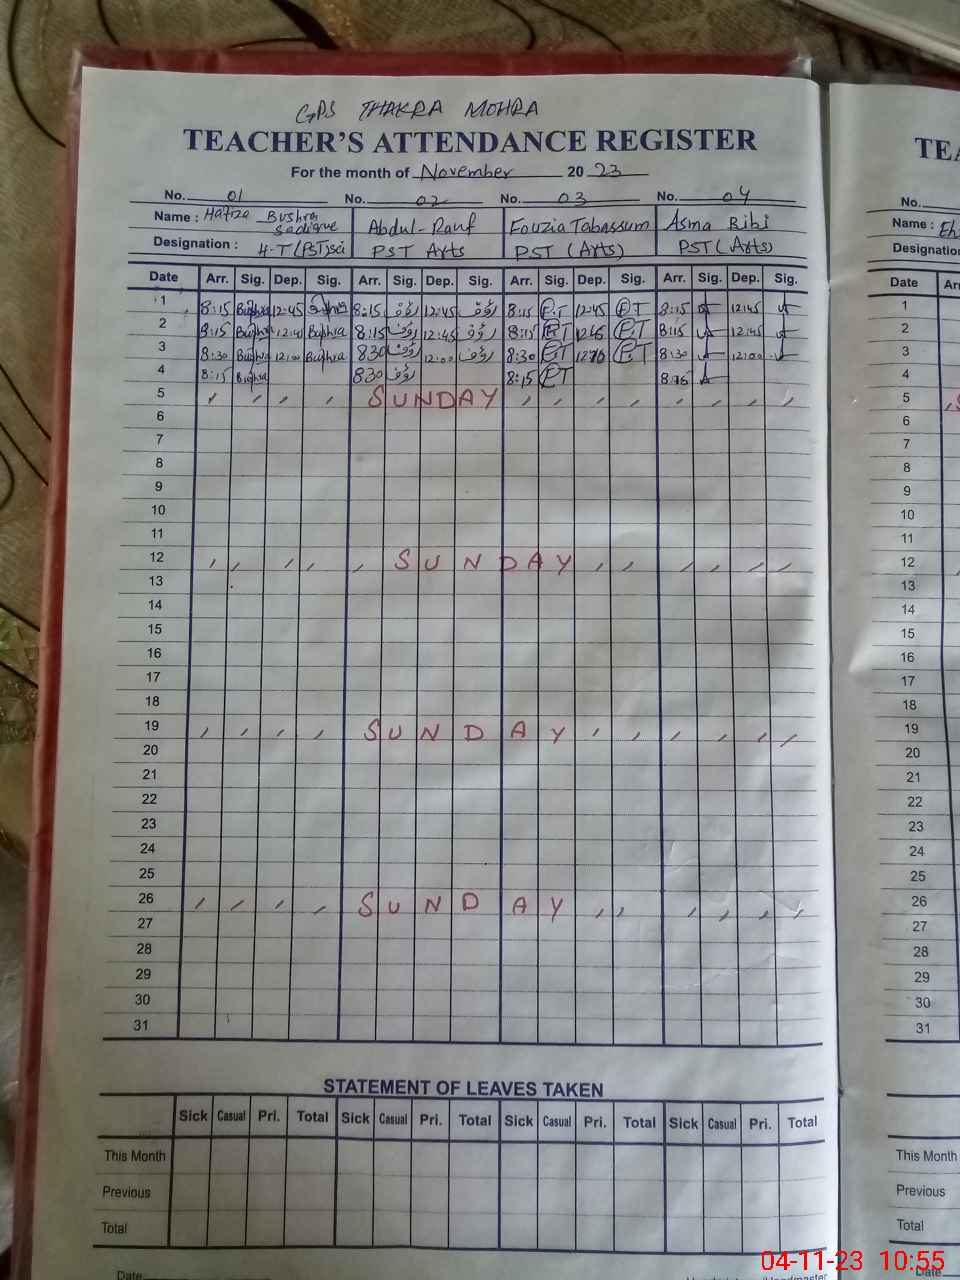 GPS THAKRA MOHRA
TEACHER'S ATTENDANCE REGISTER
For the month of November 20 23
No. 01 No. 02 No. 03 No. 04
Name : Hafiza Bushra Sadique Abdul-Rauf Fouzia Tabassum Asma Bibi
Designation : H-T (PST)sci PST Arts PST (Arts) PST (Arts)
Date Arr. Sig. Dep. Sig. Arr. Sig. Dep. Sig. Arr. Sig. Dep. Sig. Arr. Sig. Dep. Sig.
1 8:15 Bushra 12:45 Bushra 8:15 رؤف 12:45 رؤف 8:15 F.T 12:45 F.T 8:15 12:45
2 8:15 Bushra 12:45 Bushra 8:15 رؤف 12:45 رؤف 8:15 F.T 12:45 F.T 8:15 12:45
3 8:30 Bushra 12:00 Bushra 830 رؤف 12:00 رؤف 8:30 F.T F.T 8:30 12:00
4 8:15 Bushra 830 رؤف 8:15 F.T 8:15
5 SUNDAY
6
7
8
9
10
11
12 SUNDAY
13
14
15
16
17
18
19 SUNDAY
20
21
22
23
24
25
26 SUNDAY
27
28
29
30
31
STATEMENT OF LEAVES TAKEN
Sick Casual Pri. Total Sick Casual Pri. Total Sick Casual Pri. Total Sick Casual Pri. Total
This Month
Previous
Total
Date
TEA
No.
Name : Eh
Designation
Date Arr
1
2
3
4
5 S
6
7
8
9
10
11
12
13
14
15
16
17
18
19
20
21
22
23
24
25
26
27
28
29
30
31
This Month
Previous
Total
Date
04-11-23 10:55